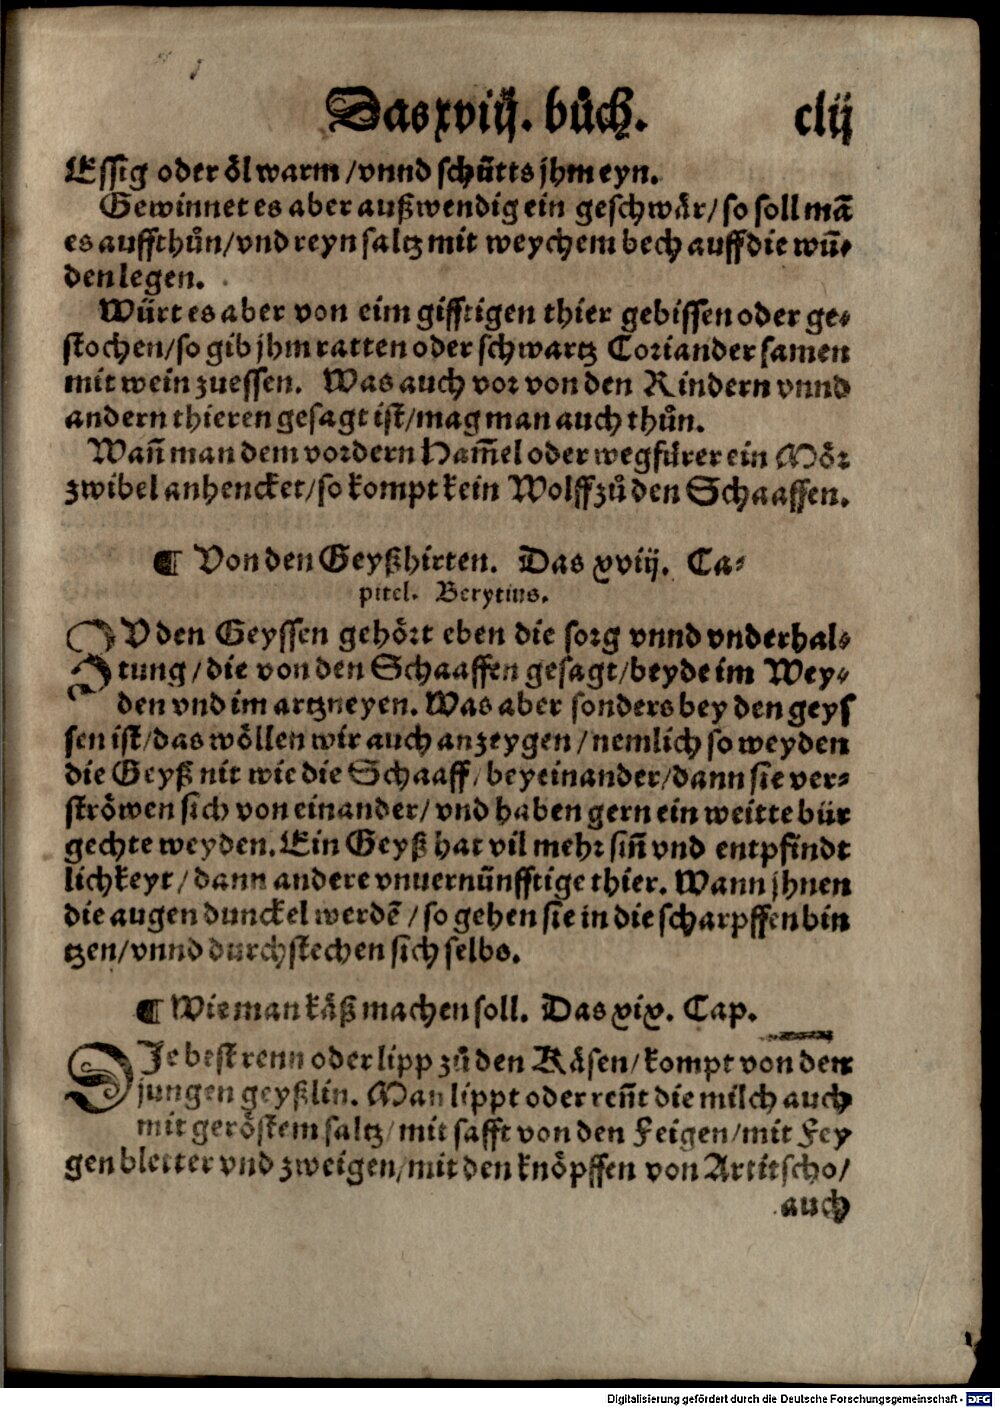 Das xviij. bůch. clij
Essig oder öl warm / vnnd schütts jhm eyn.
Gewinnet es aber außwendig ein geschwär / so soll mã
es auffthůn / vnd reyn saltz mit weychem bech auff die wũ-
den legen.
Würt es aber von eim gifftigen thier gebissen oder ge-
stochen / so gib jhm ratten oder schwartz Coriander samen
mit wein zuessen. Was auch vor von den Rindern vnnd
andern thieren gesagt ist / mag man auch thůn.
Wañ man dem vordern Ham̃el oder wegfürer ein Mör
zwibel anhencket / so kompt kein Wolff zů den Schaaffen.
¶ Von den Geyßhirten. Das xviij. Ca-
pitel. Berytius.
ZV den Geyssen gehört eben die sorg vnnd vnderhal-
tung / die von den Schaaffen gesagt / beyde im Wey-
den vnd im artzneyen. Was aber sonders bey den geys
sen ist / das wöllen wir auch anzeygen / nemlich so weyden
die Geyß nit wie die Schaaff / beyeinander / dann sie ver-
ströwen sich von einander / vnd haben gern ein weitte bür
gechte weyden. Ein Geyß hat vil mehr siñ vnd entpfindt
lichkeyt / dann andere vnuernünfftige thier. Wann jhnen
die augen dunckel werdẽ / so gehen sie in die scharpffen bin
tzen / vnnd durchstechen sich selbs.
¶ Wie man käß machen soll. Das xix. Cap.
DJe best renn oder lipp zů den Käsen / kompt von den
jungen geyßlin. Man lippt oder reñt die milch auch
mit geröstem saltz / mit safft von den Feigen / mit Fey
gen bletter vnd zweigen / mit den knöpffen von Artitscho /
auch
Digitalisierung gefördert durch die Deutsche Forschungsgemeinschaft - DFG